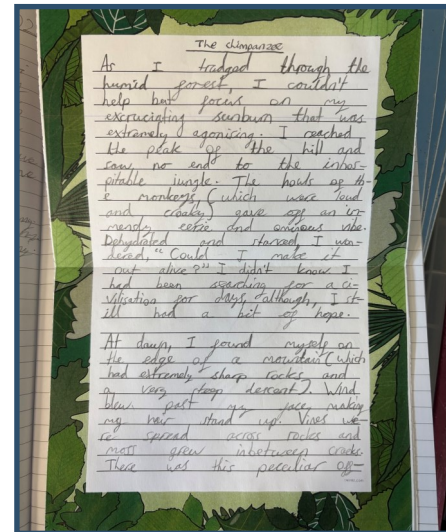 The chimpanzee
As I tradged through the
humid forest, I couldn't
help but focus on my
excruciating sunburn that was
extremely agonising. I reached
the peak of the hill and
saw no end to the inhos-
pitable jungle. The howls of th-
e monkeys, (which were loud
and croaky) gave off an im-
mensly eerie and ominous vibe.
Dehydrated and starved, I won-
dered, "Could I make it
out alive?" I didn't know. I
had been searching for a ci-
vilisation for days, although, I st-
ill had a bit of hope.
At dawn, I found myself on
the edge of a mountain (which
had extremely sharp rocks and
a very steep descent). Wind
blew past my face, making
my hair stand up. Vines we-
re spread across rocks and
moss grew inbetween cracks.
There was this peculiar off-